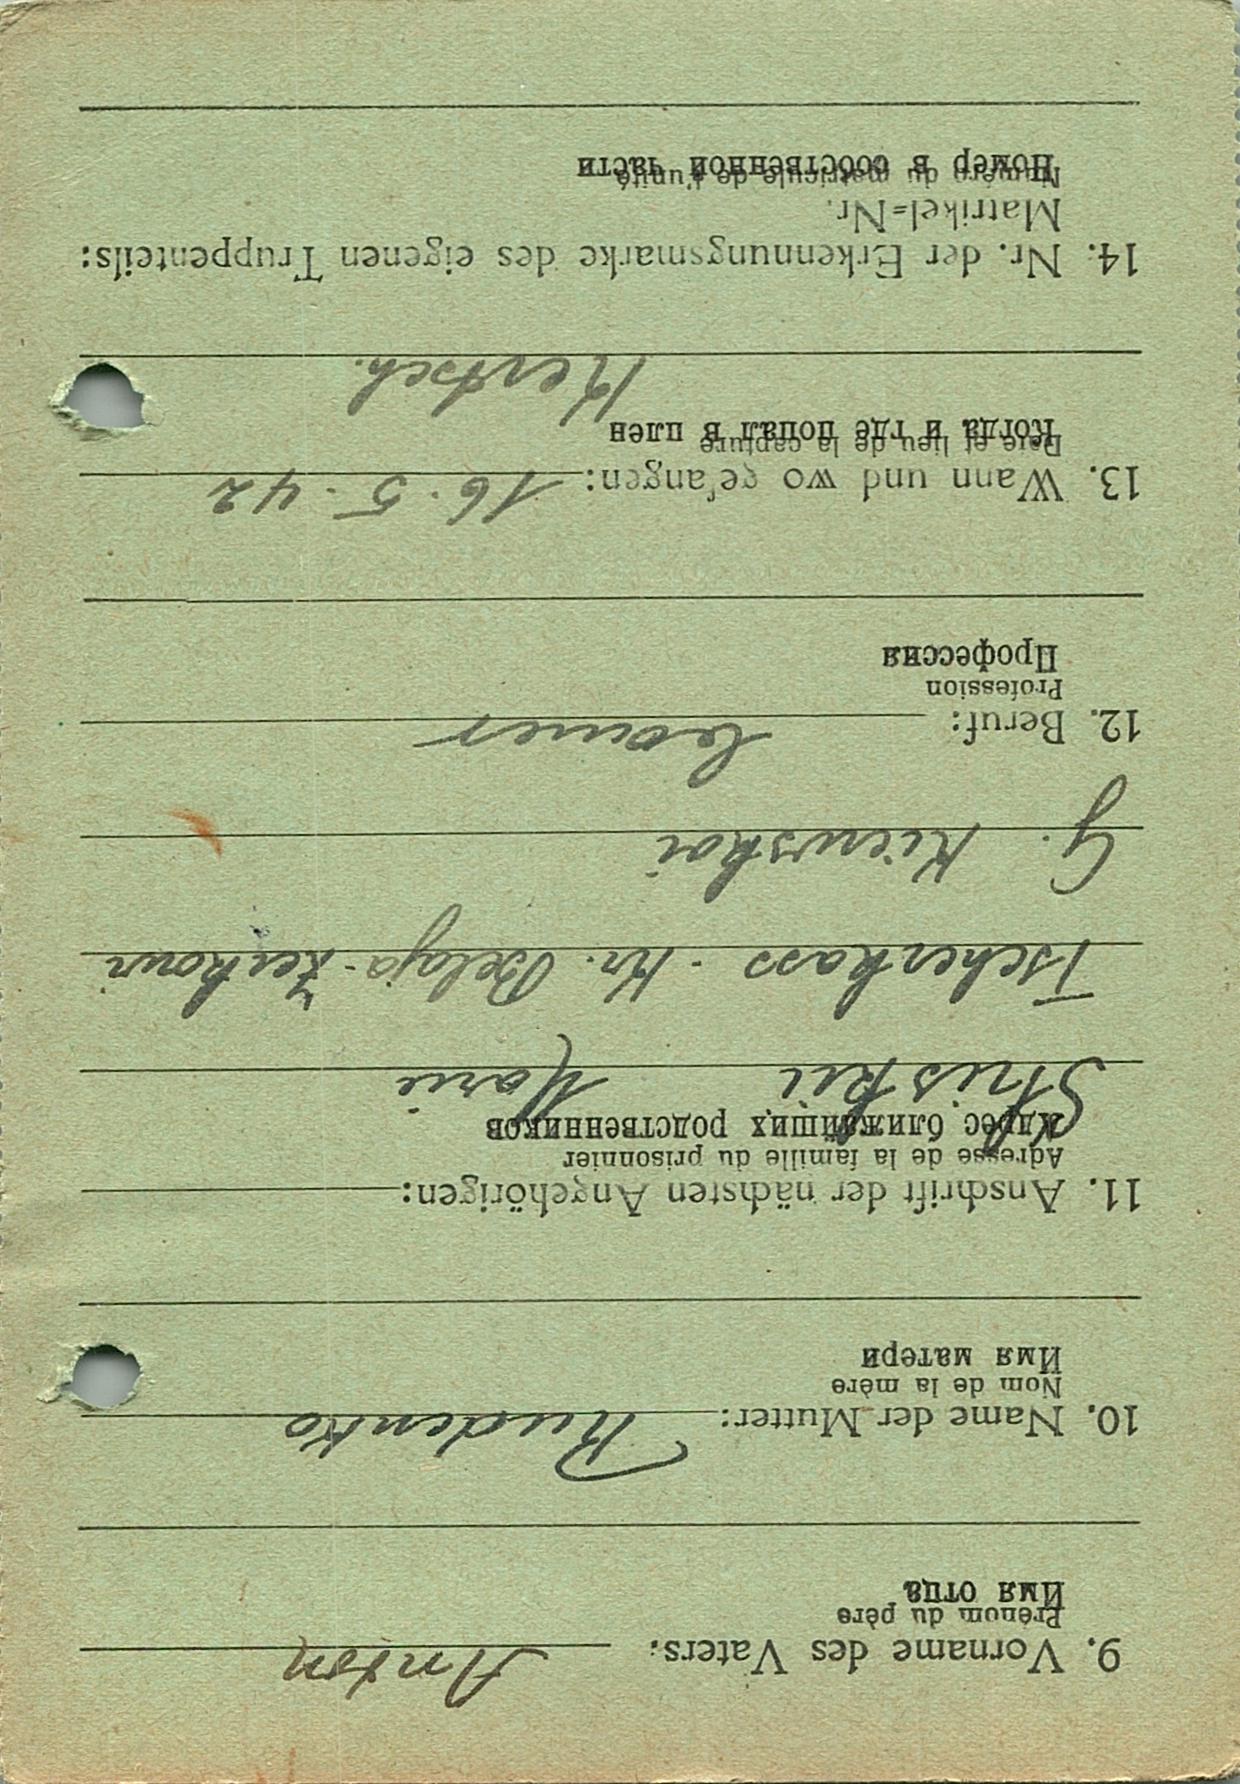 9. Vorname des Vaters: Anton
Prénom du père
Имя отца
10. Name der Mutter: Rudenko
Nom de la mère
Имя матери
11. Anschrift der nächsten Angehörigen:
Adresse de la famille du prisonnier
Адрес ближайших родственников
Marie
Tscherkass - Kr. Belaja-Zerkowi
G. Kiewskoi
12. Beruf:
Profession
Профессия
13. Wann und wo gefangen: 16.5.42
Date et lieu de la capture
Когда и где попал в плен
Kertsch.
14. Nr. der Erkennungsmarke des eigenen Truppenteils:
Matrikel=Nr.
Numéro du matricule de l'unité
Номер в собственной части